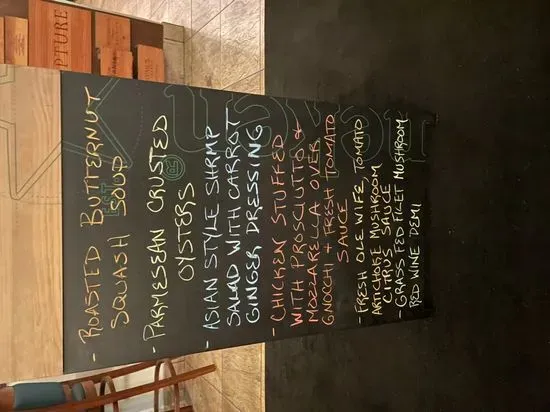 - ROASTED BUTTERNUT
SQUASH SOUP
- PARMESEAN CRUSTED
OYSTERS
- ASIAN STYLE SHRMP
SALAD WITH CARROT
GINGER DRESSING
- CHICKEN STUFFED
WITH PROSCIUTTO &
MOZZARELLA OVER
GNOCCHI + FRESH TOMATO
SAUCE
- FRESH OLE WIFE, TOMATO
ARTICHOKE MUSHROOM
CITRUS SAUCE
- GRASS FED FILET MUSHROOM
RED WINE DEMI